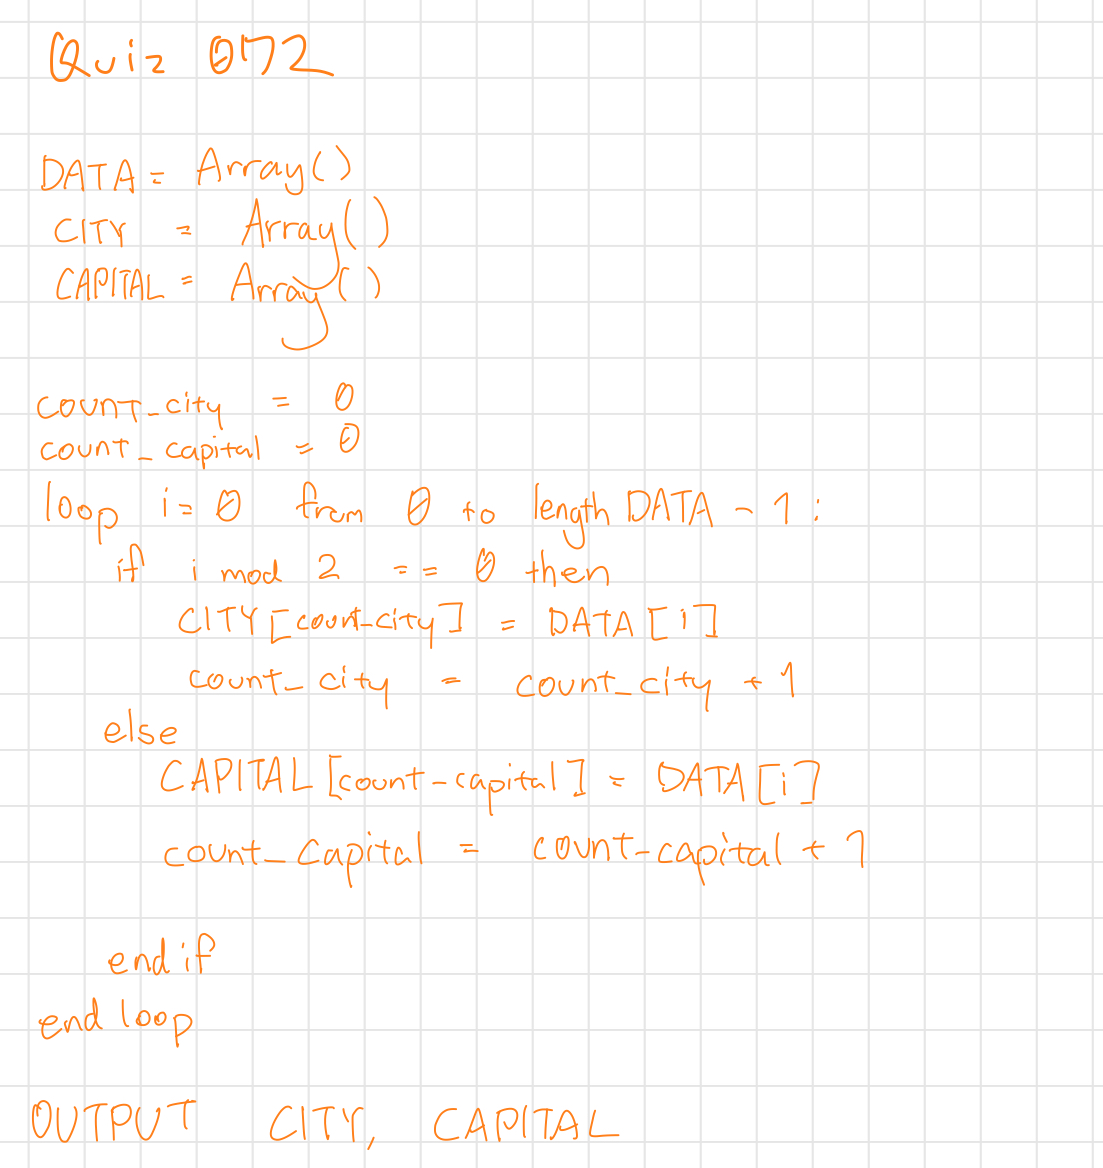 Quiz 072
DATA = Array()
CITY = Array()
CAPITAL = Array()
count_city = 0
count_capital = 0
loop i = 0 from 0 to length DATA - 1 :
if i mod 2 == 0 then
CITY[count_city] = DATA[i]
count_city = count_city + 1
else
CAPITAL[count_capital] = DATA[i]
count_Capital = count_capital + 1
end if
end loop
OUTPUT CITY, CAPITAL